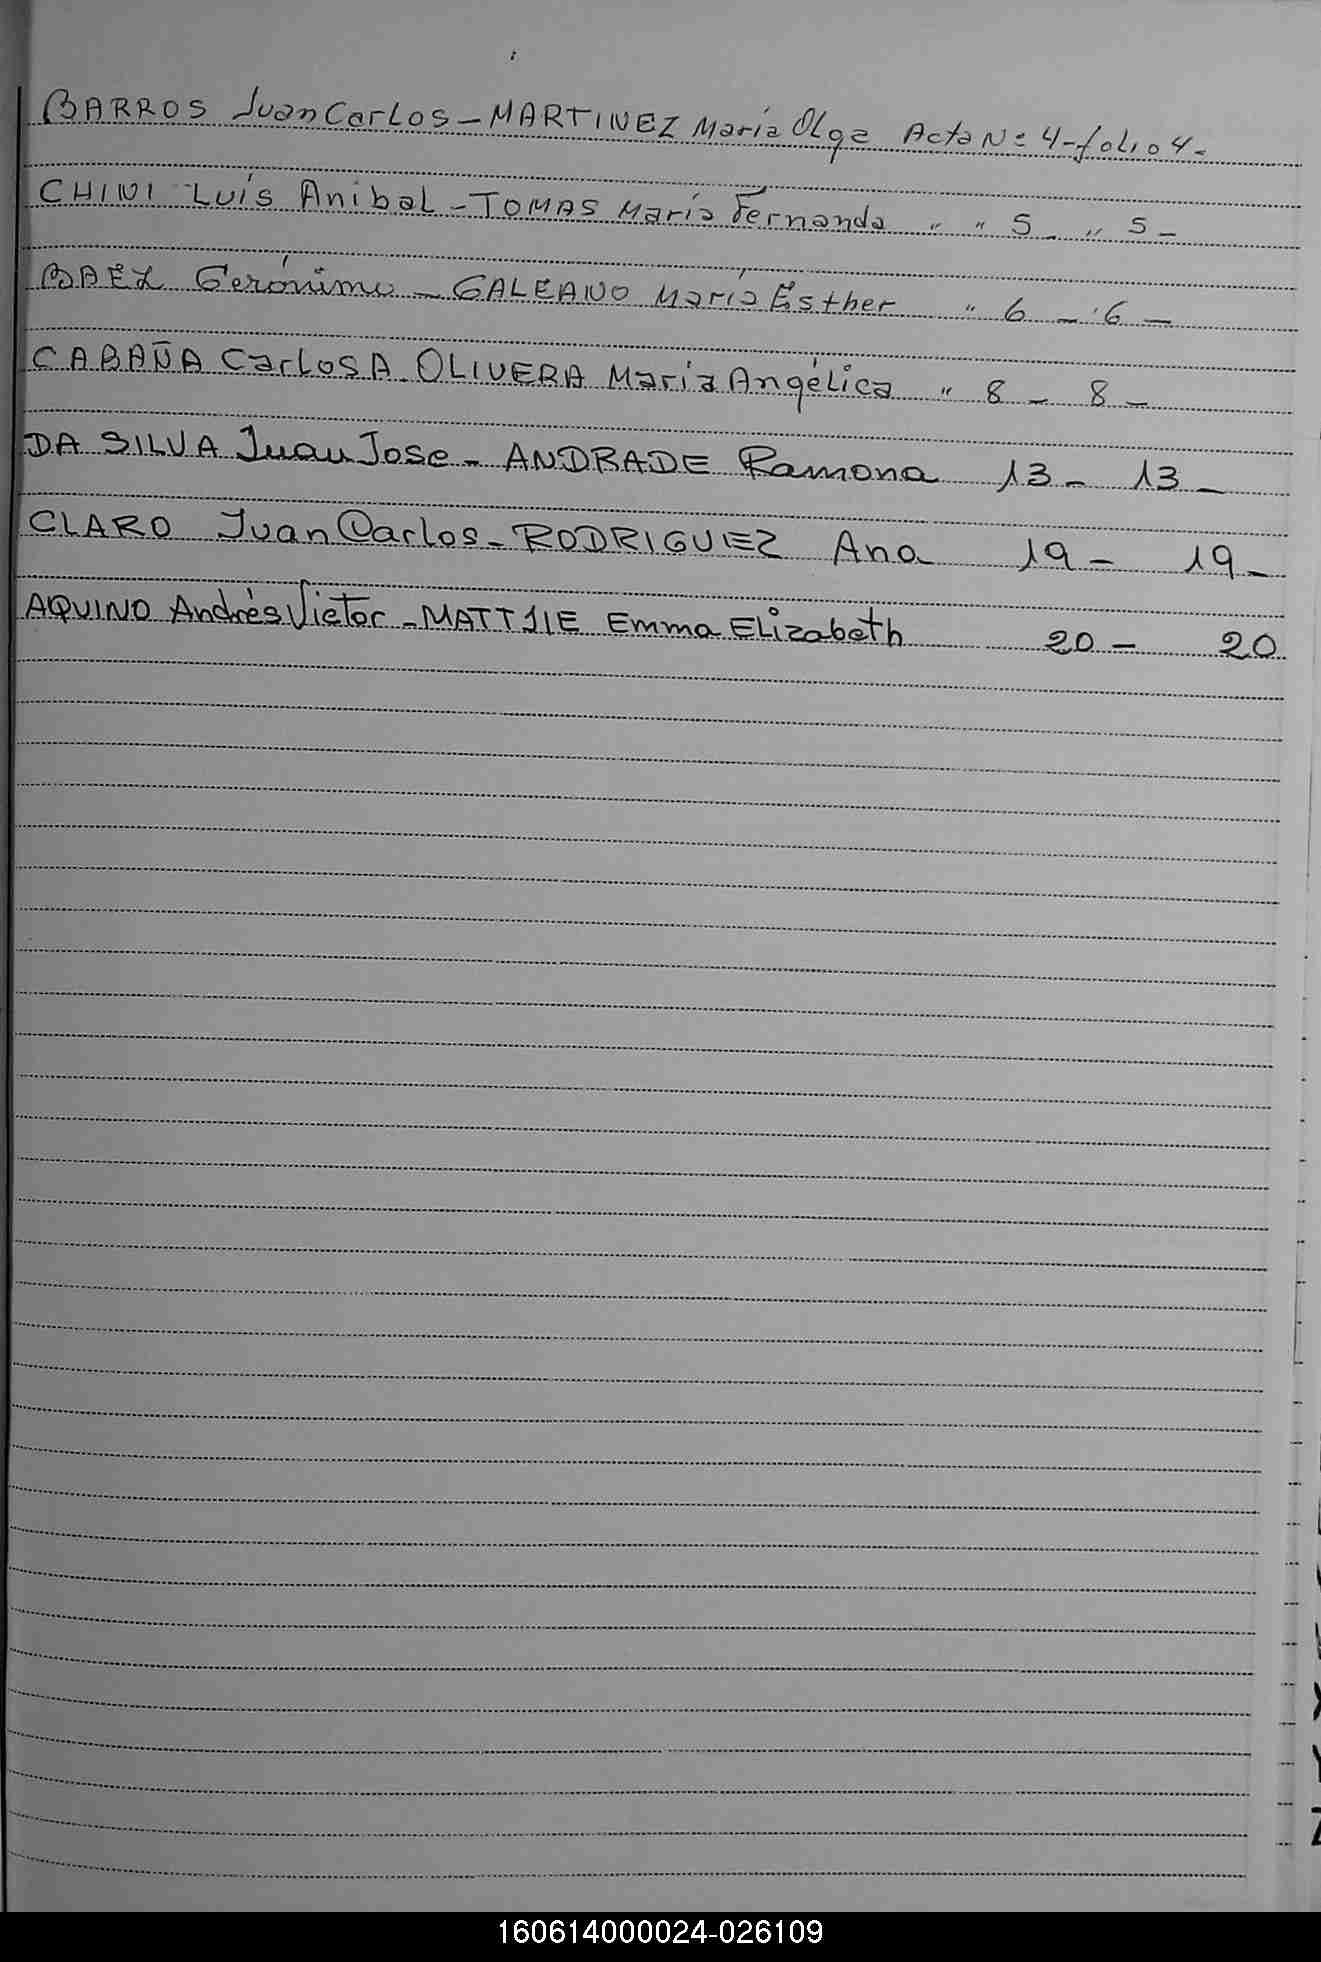 BARROS Juan Carlos - MARTINEZ María Olga Acta Nº 4 - folio 4 -
CHINI Luís Anibal - TOMAS María Fernanda " " 5 - " 5 -
BAEZ Gerónimo - GALEANO María Esther " 6 - " 6 -
CABAÑA Carlos A. OLIVERA María Angélica " 8 - 8 -
DA SILVA Juan Jose - ANDRADE Ramona 13 - 13 -
CLARO Juan Carlos - RODRIGUEZ Ana 19 - 19 -
AQUINO Andrés Victor - Emma Elizabeth 20 - 20
X
Y
Z
160614000024-026109